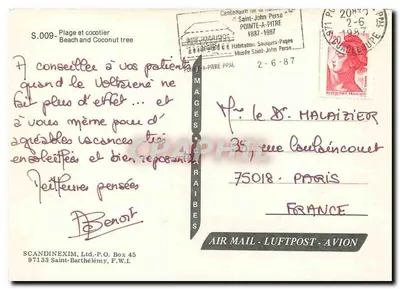 S.009- Plage et cocotier
Beach and Coconut tree
Centenaire de la
Saint-John Perse
POINTE-A-PITRE
1887-1987
Habitation Souques-Pagès
Musée Saint-John Perse
POINTE-A-PITRE PPAL
2-6-87
2-6
1987
GUADELOUPE
A conseiller à vos patients
quand le Voltarene ne
fait plus d'effet... et
à vous même pour d'
agréables vacances très
ensoleillées et bien reposantes
Meilleures pensées
Benoit
IMAGES CARAIBES
Mr le Dr MALAIZIER
35, rue Caulaincourt
75018 - PARIS
FRANCE
SCANDINEXIM, Ltd.-P.O. Box 45
97133 Saint-Barthélémy, F.W.I.
AIR MAIL - LUFTPOST - AVION